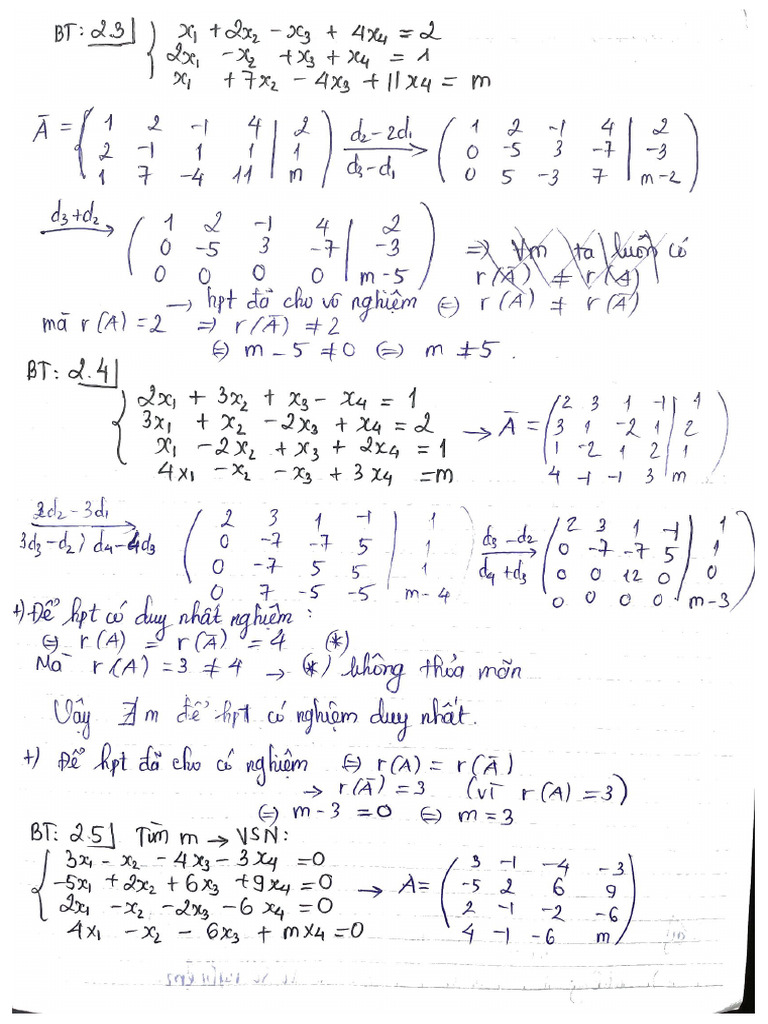 BT: 2.3 { x₁ + 2x₂ - x₃ + 4x₄ = 2
2x₁ - x₂ + x₃ + x₄ = 1
x₁ + 7x₂ - 4x₃ + 11x₄ = m
Ā = ( 1 2 -1 4 | 2 ) d₂-2d₁ → ( 1 2 -1 4 | 2 )
2 -1 1 1 | 1 d₃-d₁ 0 -5 3 -7 | -3
1 7 -4 11 | m 0 5 -3 7 | m-2
d₃+d₂ → ( 1 2 -1 4 | 2 )
0 -5 3 -7 | -3 ⇒ ∀m ta luôn có
0 0 0 0 | m-5 r(Ā) ≠ r(A)
→ hpt đã cho vô nghiệm ⇔ r(A) ≠ r(Ā)
mà r(A) = 2 ⇒ r(Ā) ≠ 2
⇔ m - 5 ≠ 0 ⇔ m ≠ 5.
BT: 2.4
{ 2x₁ + 3x₂ + x₃ - x₄ = 1
3x₁ + x₂ - 2x₃ + x₄ = 2
x₁ - 2x₂ + x₃ + 2x₄ = 1
4x₁ - x₂ - x₃ + 3x₄ = m
→ Ā = ( 2 3 1 -1 | 1
3 1 -2 1 | 2
1 -2 1 2 | 1
4 -1 -1 3 | m )
2d₂ - 3d₁
3d₃ - d₂, d₄ - 4d₃ →
( 2 3 1 -1 | 1
0 -7 -7 5 | 1
0 -7 5 5 | 1
0 7 -5 -5 | m-4
d₃-d₂
d₄+d₃ →
( 2 3 1 -1 | 1
0 -7 -7 5 | 1
0 0 12 0 | 0
0 0 0 0 | m-3 )
+) Để hpt có duy nhất nghiệm:
⇔ r(A) = r(Ā) = 4 (*)
Mà r(A) = 3 ≠ 4 → (*) không thỏa mãn
Vậy ∄ m để hpt có nghiệm duy nhất.
+) Để hpt đã cho có nghiệm ⇔ r(A) = r(Ā)
→ r(Ā) = 3 (vì r(A) = 3)
⇔ m - 3 = 0 ⇔ m = 3
BT: 2.5 Tìm m → VSN:
{ 3x₁ - x₂ - 4x₃ - 3x₄ = 0
-5x₁ + 2x₂ + 6x₃ + 9x₄ = 0
2x₁ - x₂ - 2x₃ - 6x₄ = 0
4x₁ - x₂ - 6x₃ + mx₄ = 0
→ A = ( 3 -1 -4 -3
-5 2 6 9
2 -1 -2 -6
4 -1 -6 m )